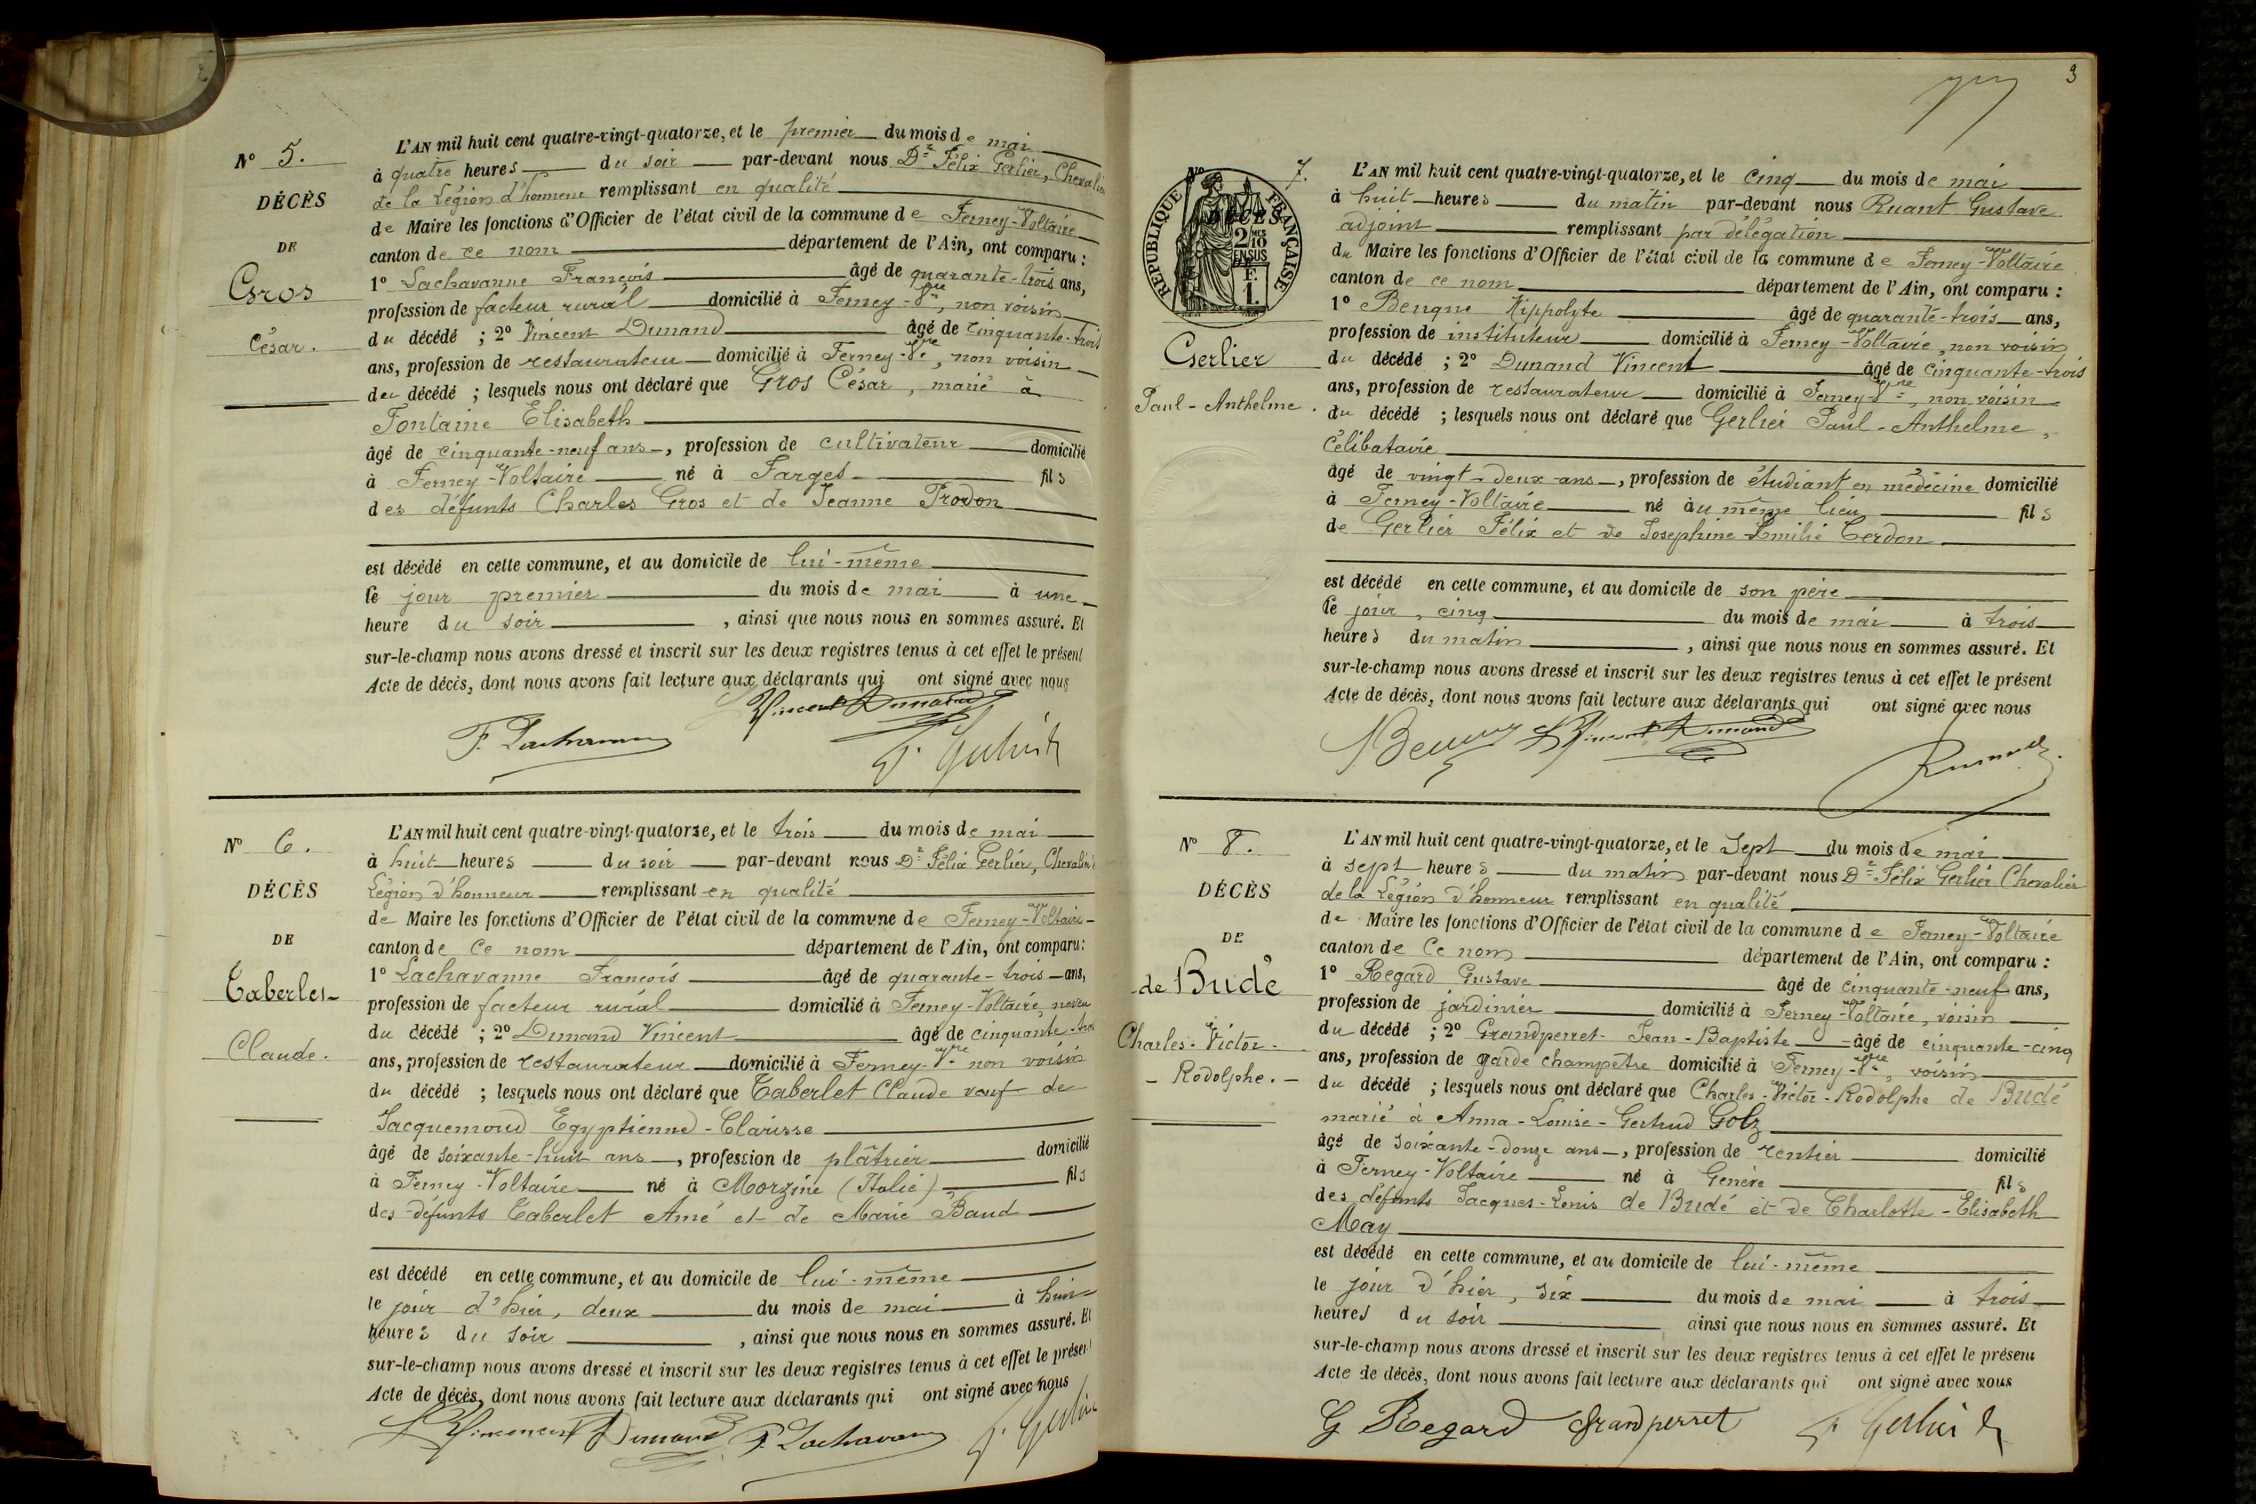 N° 5.
DÉCÈS
DE
Gros
César.
L'AN mil huit cent quatre-vingt-quatorze, et le premier du mois de mai
à quatre heures du soir par-devant nous Dr Félix Gerlier, Chevalier
de la Légion d'honneur remplissant en qualité
de Maire les fonctions d'Officier de l'état civil de la commune de Ferney-Voltaire
canton de ce nom département de l'Ain, ont comparu :
1° Lachavanne François âgé de quarante-trois ans,
profession de facteur rural domicilié à Ferney-Vre, non voisin
du décédé ; 2° Vincent Dunand âgé de cinquante-trois
ans, profession de restaurateur domicilié à Ferney-Vre, non voisin
du décédé ; lesquels nous ont déclaré que Gros César, marié à
Fontaine Elisabeth
âgé de cinquante-neuf ans, profession de cultivateur domicilié
à Ferney-Voltaire né à Farges fils
des défunts Charles Gros et de Jeanne Prodon
est décédé en cette commune, et au domicile de lui-même
le jour premier du mois de mai à une
heure du soir, ainsi que nous nous en sommes assuré. Et
sur-le-champ nous avons dressé et inscrit sur les deux registres tenus à cet effet le présent
Acte de décès, dont nous avons fait lecture aux déclarants qui ont signé avec nous
Vincent Dunand
F. Lachavanne
F. Gerlier
N° 6.
DÉCÈS
DE
Taberlet
Claude.
L'AN mil huit cent quatre-vingt-quatorze, et le trois du mois de mai
à huit heures du soir par-devant nous Dr Félix Gerlier, Chevalier
Légion d'honneur remplissant en qualité
de Maire les fonctions d'Officier de l'état civil de la commune de Ferney-Voltaire
canton de Ce nom département de l'Ain, ont comparu :
1° Lachavanne François âgé de quarante-trois ans,
profession de facteur rural domicilié à Ferney-Voltaire, neveu
du décédé ; 2° Dunand Vincent âgé de cinquante-trois
ans, profession de restaurateur domicilié à Ferney-Vre non voisin
du décédé ; lesquels nous ont déclaré que Taberlet Claude veuf de
Jacquemoud Egyptienne-Clarisse
âgé de soixante-huit ans, profession de plâtrier domicilié
à Ferney-Voltaire né à Morzine (Italie) fils
des défunts Taberlet Amé et de Marie Baud
est décédé en cette commune, et au domicile de lui-même
le jour d'hier, deux du mois de mai à huit
heures du soir, ainsi que nous nous en sommes assuré. Et
sur-le-champ nous avons dressé et inscrit sur les deux registres tenus à cet effet le présent
Acte de décès, dont nous avons fait lecture aux déclarants qui ont signé avec nous
Vincent Dunand F. Lachavanne F. Gerlier
3
N° 7.
DÉCÈS
REPUBLIQUE FRANÇAISE
2/10 EN SUS
F. 1.
Gerlier
Paul-Anthelme.
L'AN mil huit cent quatre-vingt-quatorze, et le cinq du mois de mai
à huit heures du matin par-devant nous Ruant Gustave
adjoint remplissant par délégation
du Maire les fonctions d'Officier de l'état civil de la commune de Ferney-Voltaire
canton de ce nom département de l'Ain, ont comparu :
1° Bengue Hippolyte âgé de quarante-trois ans,
profession de instituteur domicilié à Ferney-Voltaire, non voisin
du décédé ; 2° Dunand Vincent âgé de cinquante-trois
ans, profession de restaurateur domicilié à Ferney-Vre, non voisin
du décédé ; lesquels nous ont déclaré que Gerlier Paul-Anthelme,
célibataire
âgé de vingt-deux ans, profession de étudiant en médecine domicilié
à Ferney-Voltaire né au même lieu fils
de Gerlier Félix et de Josephine Emilie Cerdon
est décédé en cette commune, et au domicile de son père
le jour, cinq du mois de mai à trois
heures du matin, ainsi que nous nous en sommes assuré. Et
sur-le-champ nous avons dressé et inscrit sur les deux registres tenus à cet effet le présent
Acte de décès, dont nous avons fait lecture aux déclarants qui ont signé avec nous
Vincent Dunand
N° 8.
DÉCÈS
DE
de Budé
Charles-Victor-
Rodolphe.
L'AN mil huit cent quatre-vingt-quatorze, et le Sept du mois de mai
à sept heures du matin par-devant nous Dr Félix Gerlier Chevalier
de la Légion d'honneur remplissant en qualité
de Maire les fonctions d'Officier de l'état civil de la commune de Ferney-Voltaire
canton de Ce nom département de l'Ain, ont comparu :
1° Regard Gustave âgé de cinquante-neuf ans,
profession de jardinier domicilié à Ferney-Voltaire, voisin
du décédé ; 2° Grandperret Jean-Baptiste âgé de cinquante-cinq
ans, profession de garde champêtre domicilié à Ferney-Vre, voisin
du décédé ; lesquels nous ont déclaré que Charles-Victor-Rodolphe de Budé
marié à Anna-Louise-Gertrud Golz
âgé de soixante-douze ans, profession de rentier domicilié
à Ferney-Voltaire né à Genève fils
des défunts Jacques-Louis de Budé et de Charlotte-Elisabeth
May
est décédé en cette commune, et au domicile de lui-même
le jour d'hier, six du mois de mai à trois
heures du soir ainsi que nous nous en sommes assuré. Et
sur-le-champ nous avons dressé et inscrit sur les deux registres tenus à cet effet le présent
Acte de décès, dont nous avons fait lecture aux déclarants qui ont signé avec nous
G Regard Grandperret F. Gerlier